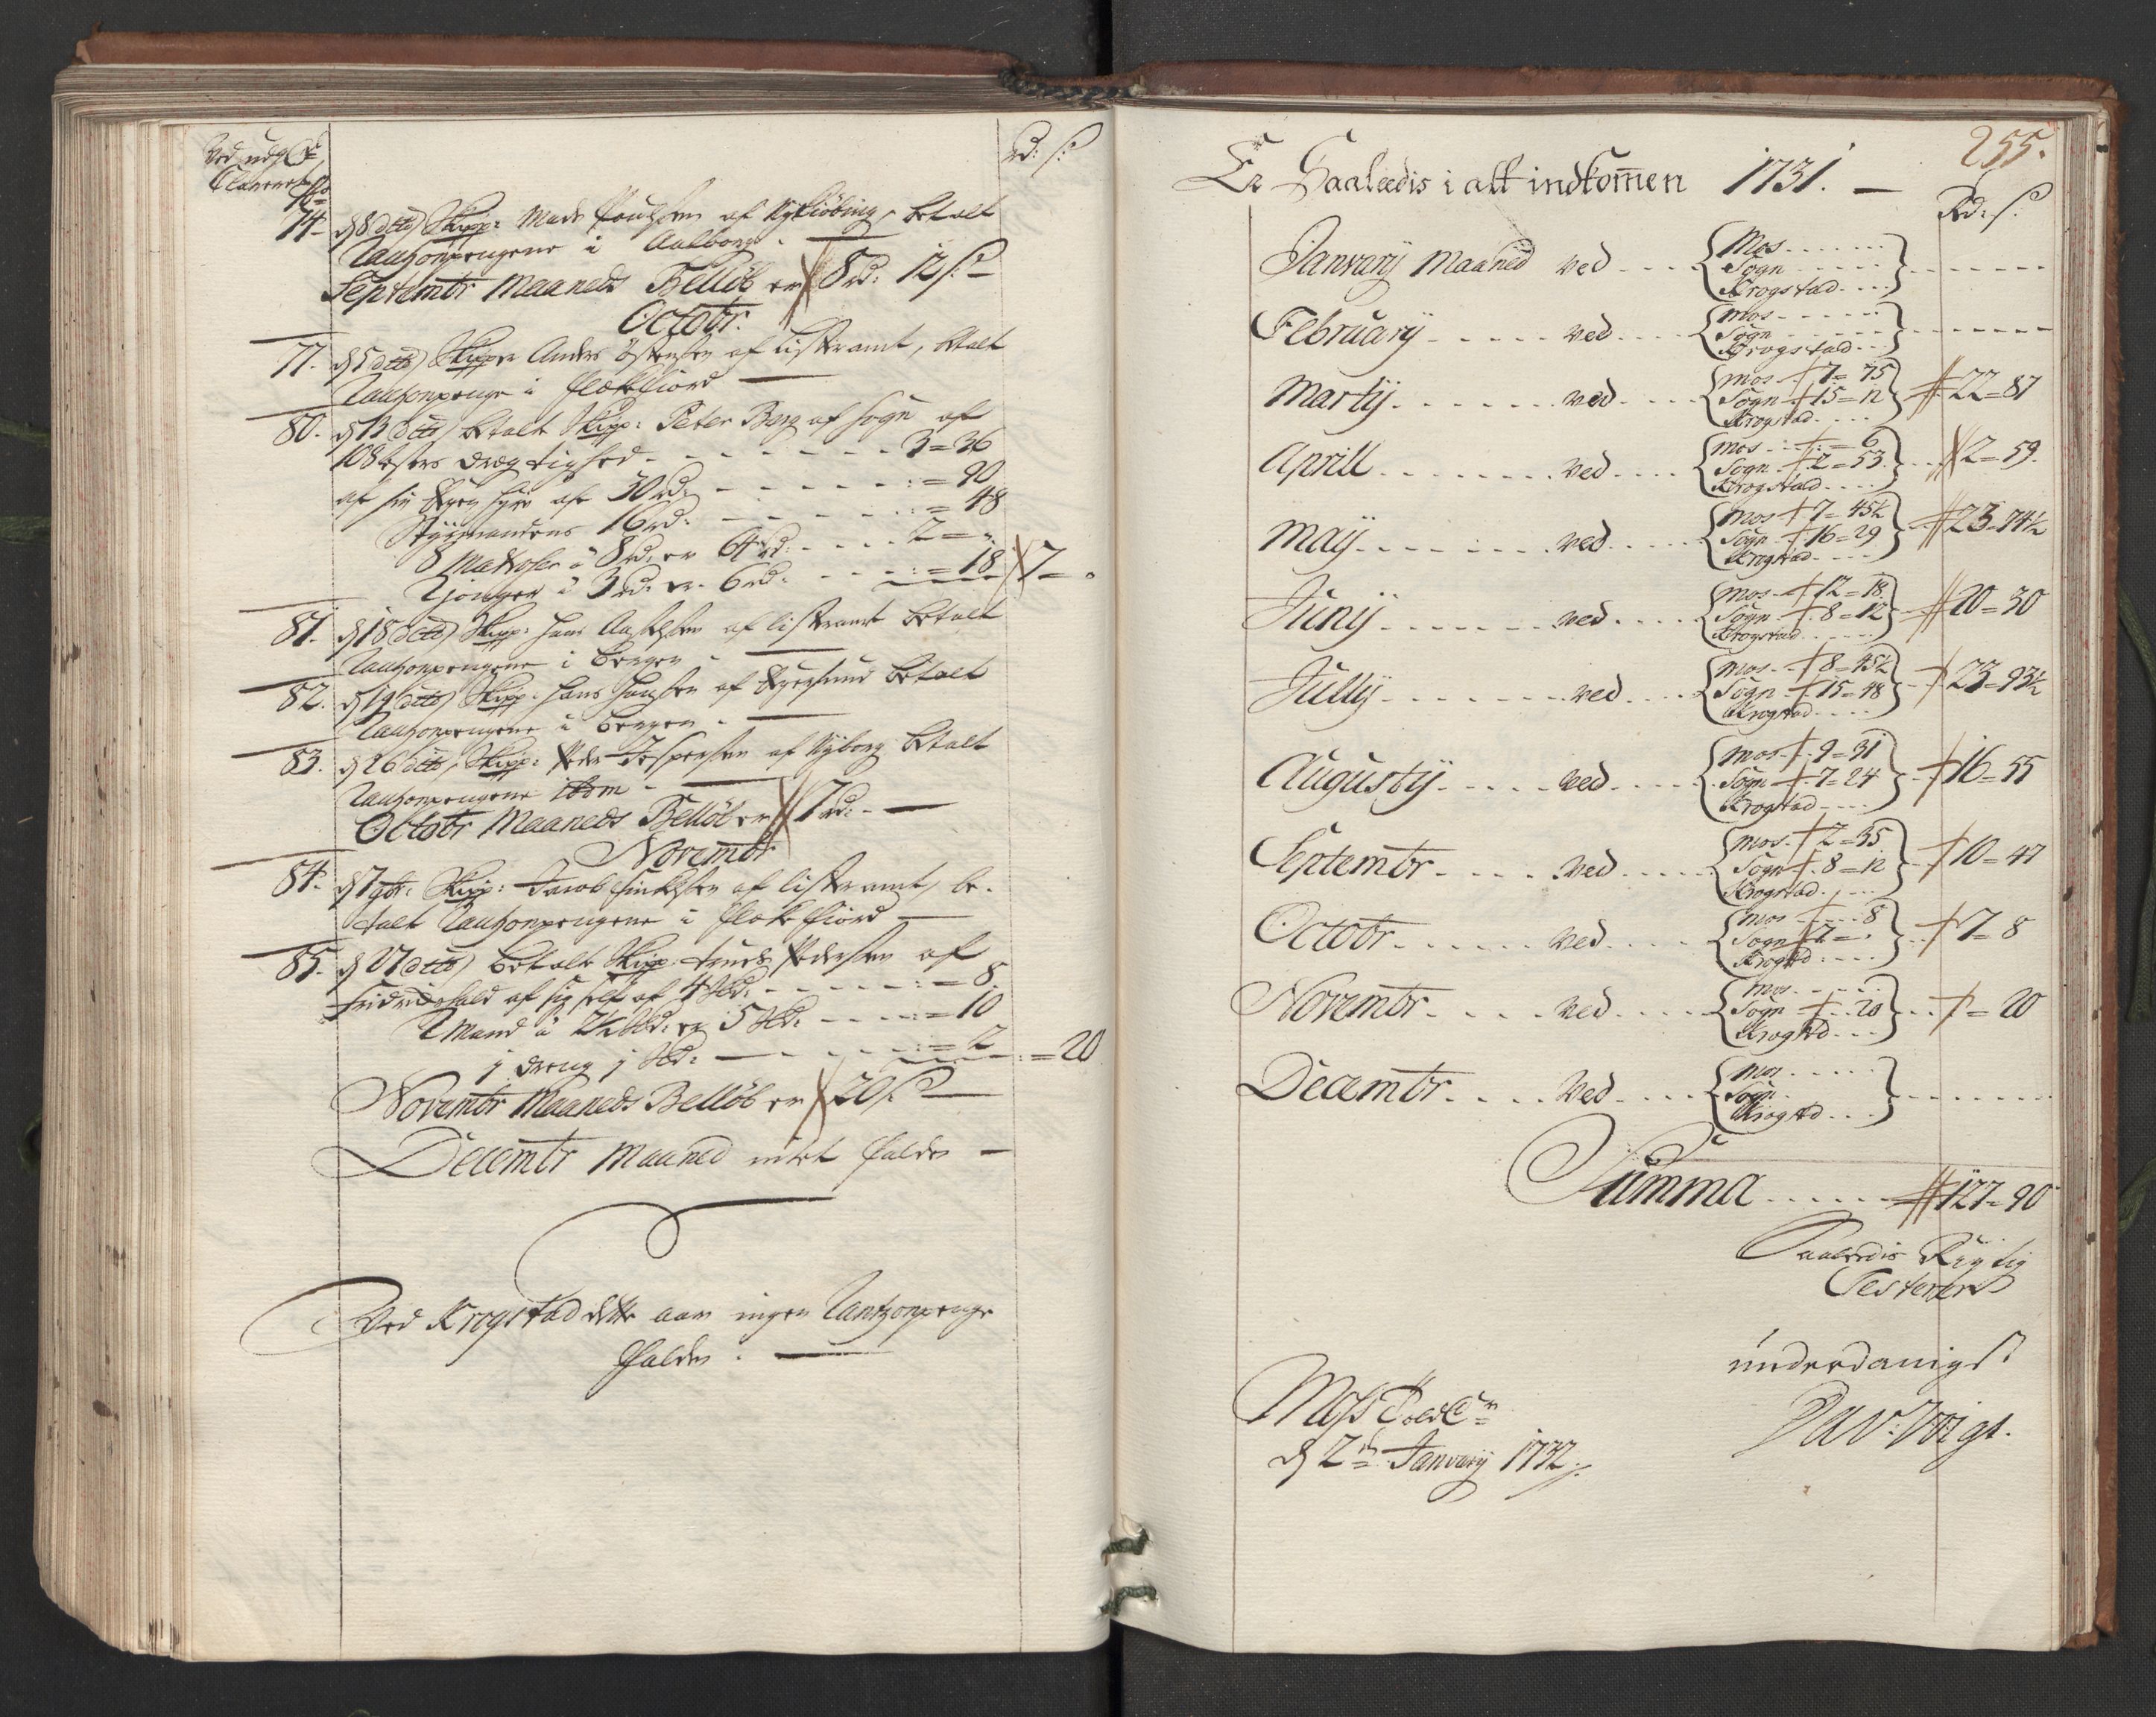 Ved udg
Clarene No
Rd: s:
74. d 8 dito Skipp: Mads Poulsen af Nykiöbing, betalt
Rantzonpengene i Aalborg. —
Septembr Maaneds Bellöb er 8 rd: 12 s: —
Octobr.
77. d 5 dito Skipper Anders Östensen af Listeramt, betalt
Rantzonpenge i Flekkefiord —
80. d 13 dito betalt Skipp: Peter Berg af Sogn af
108 lesters drægtighed - - - - - - - 3 = 36
af sin Egen hyre af 30 rd: - - - - : = 90
Styrmandens 16 rd: - - - - - : = 48
8 Matroser á 8 rd: er 64 rd: - - - - 2 = „
2 jonger á 3 rd: er 6 rd: - - - : = 18 7 = „
81. d 18 dito Skipp: Hans Aselsen af Listeramt betalt
Rantzonpengene i Bergen —
82. d 19 dito Skipp: Hans Hansen af Egersund betalt
Rantzonpengene i Bergen. —
83. d 26 dito, Skipp: Peder Jespersen af Nyborg betalt
Rantzonpengene ibdm —
Octobr Maaneds Bellöb er 7 rd: —
Novembr
84. d 7 9br: Skip: Jacob af Listeramt, be-
talt Rantzonpengene i Flekkefiord —
85. d 27 dito betalt Skipp: Truels Pedersen af
Fridrichshald af sig self af 4 Rd: - - - - : = 8.
2 Mand á 2½ Rd: er 5 Rd: - - - : = 10
1 dreng 1 Rd: — - - - - : = 2 : = 20
Novembr Maaneds Bellöb er 20 s: —
Decembr Maaned intet falden —
Ved Krogstad dette aar ingen Rantzonpenge
falden. —
255.
Er Saaledis i alt indkom̄en 1731. —
Rd: s:
January Maaned ved - - - - { Mos - - - - - -
Sogn - - - - -
Krogstad - - - - } - - - - - -
February - - - - - ved - - - - { Mos - - - - - -
Sogn - - - - - -
Krogstad - - - } - - - - - - -
Martij - - - - - - ved - - - - { Mos - 7 = 75
Sogn - 15 = 12
Krogstad - - - - } 22 = 87
Aprill - - - - - - - ved - - - - { Mos - - : = 6
Sogn - 2 = 53
Krogstad - - - - } 2 = 59.
Maij - - - - - - - ved - - - - - { Mos - 7 = 45½
Sogn - 16 = 29
Krogstad - - - - } 23 = 74½
Junij - - - - - - - ved - - - - { Mos - 12 = 18.
Sogn - 8 = 12
Krogstad - - - - - } 20 = 30
Jullij - - - - - - - ved - - - - { Mos - 8 = 45½
Sogn - 15 = 48
Krogstad - - - - } 23 = 93½
Augustij - - - - - ved - - - - - { Mos - 9 = 31
Sogn - 7 = 24
Krogstad - - - - } 16 = 55
Septembr - - - - ved - - - - - { Mos - 2 = 35
Sogn - 8 = 12
Krogstad - - - - } 10 = 47
Octobr - - - - - - ved - - - - { Mos - - - 8
Sogn 7 = -
Krogstd - - - - } 7 = 8
Novembr - - - - - ved - - - - - { Mos - - - - -
Sogn - 20
Krogstd - - - } = 20
Decembr - - - - Ved - - - - - { Mos - - - - -
Sogn -
Krogstd - - - } - - - - - - -
Summa - - - - - - 127 = 90
Saaledis Rigtig
Testerer
underdanigst
Dav: Voigt.
Moss Told
d 2n January 1732.